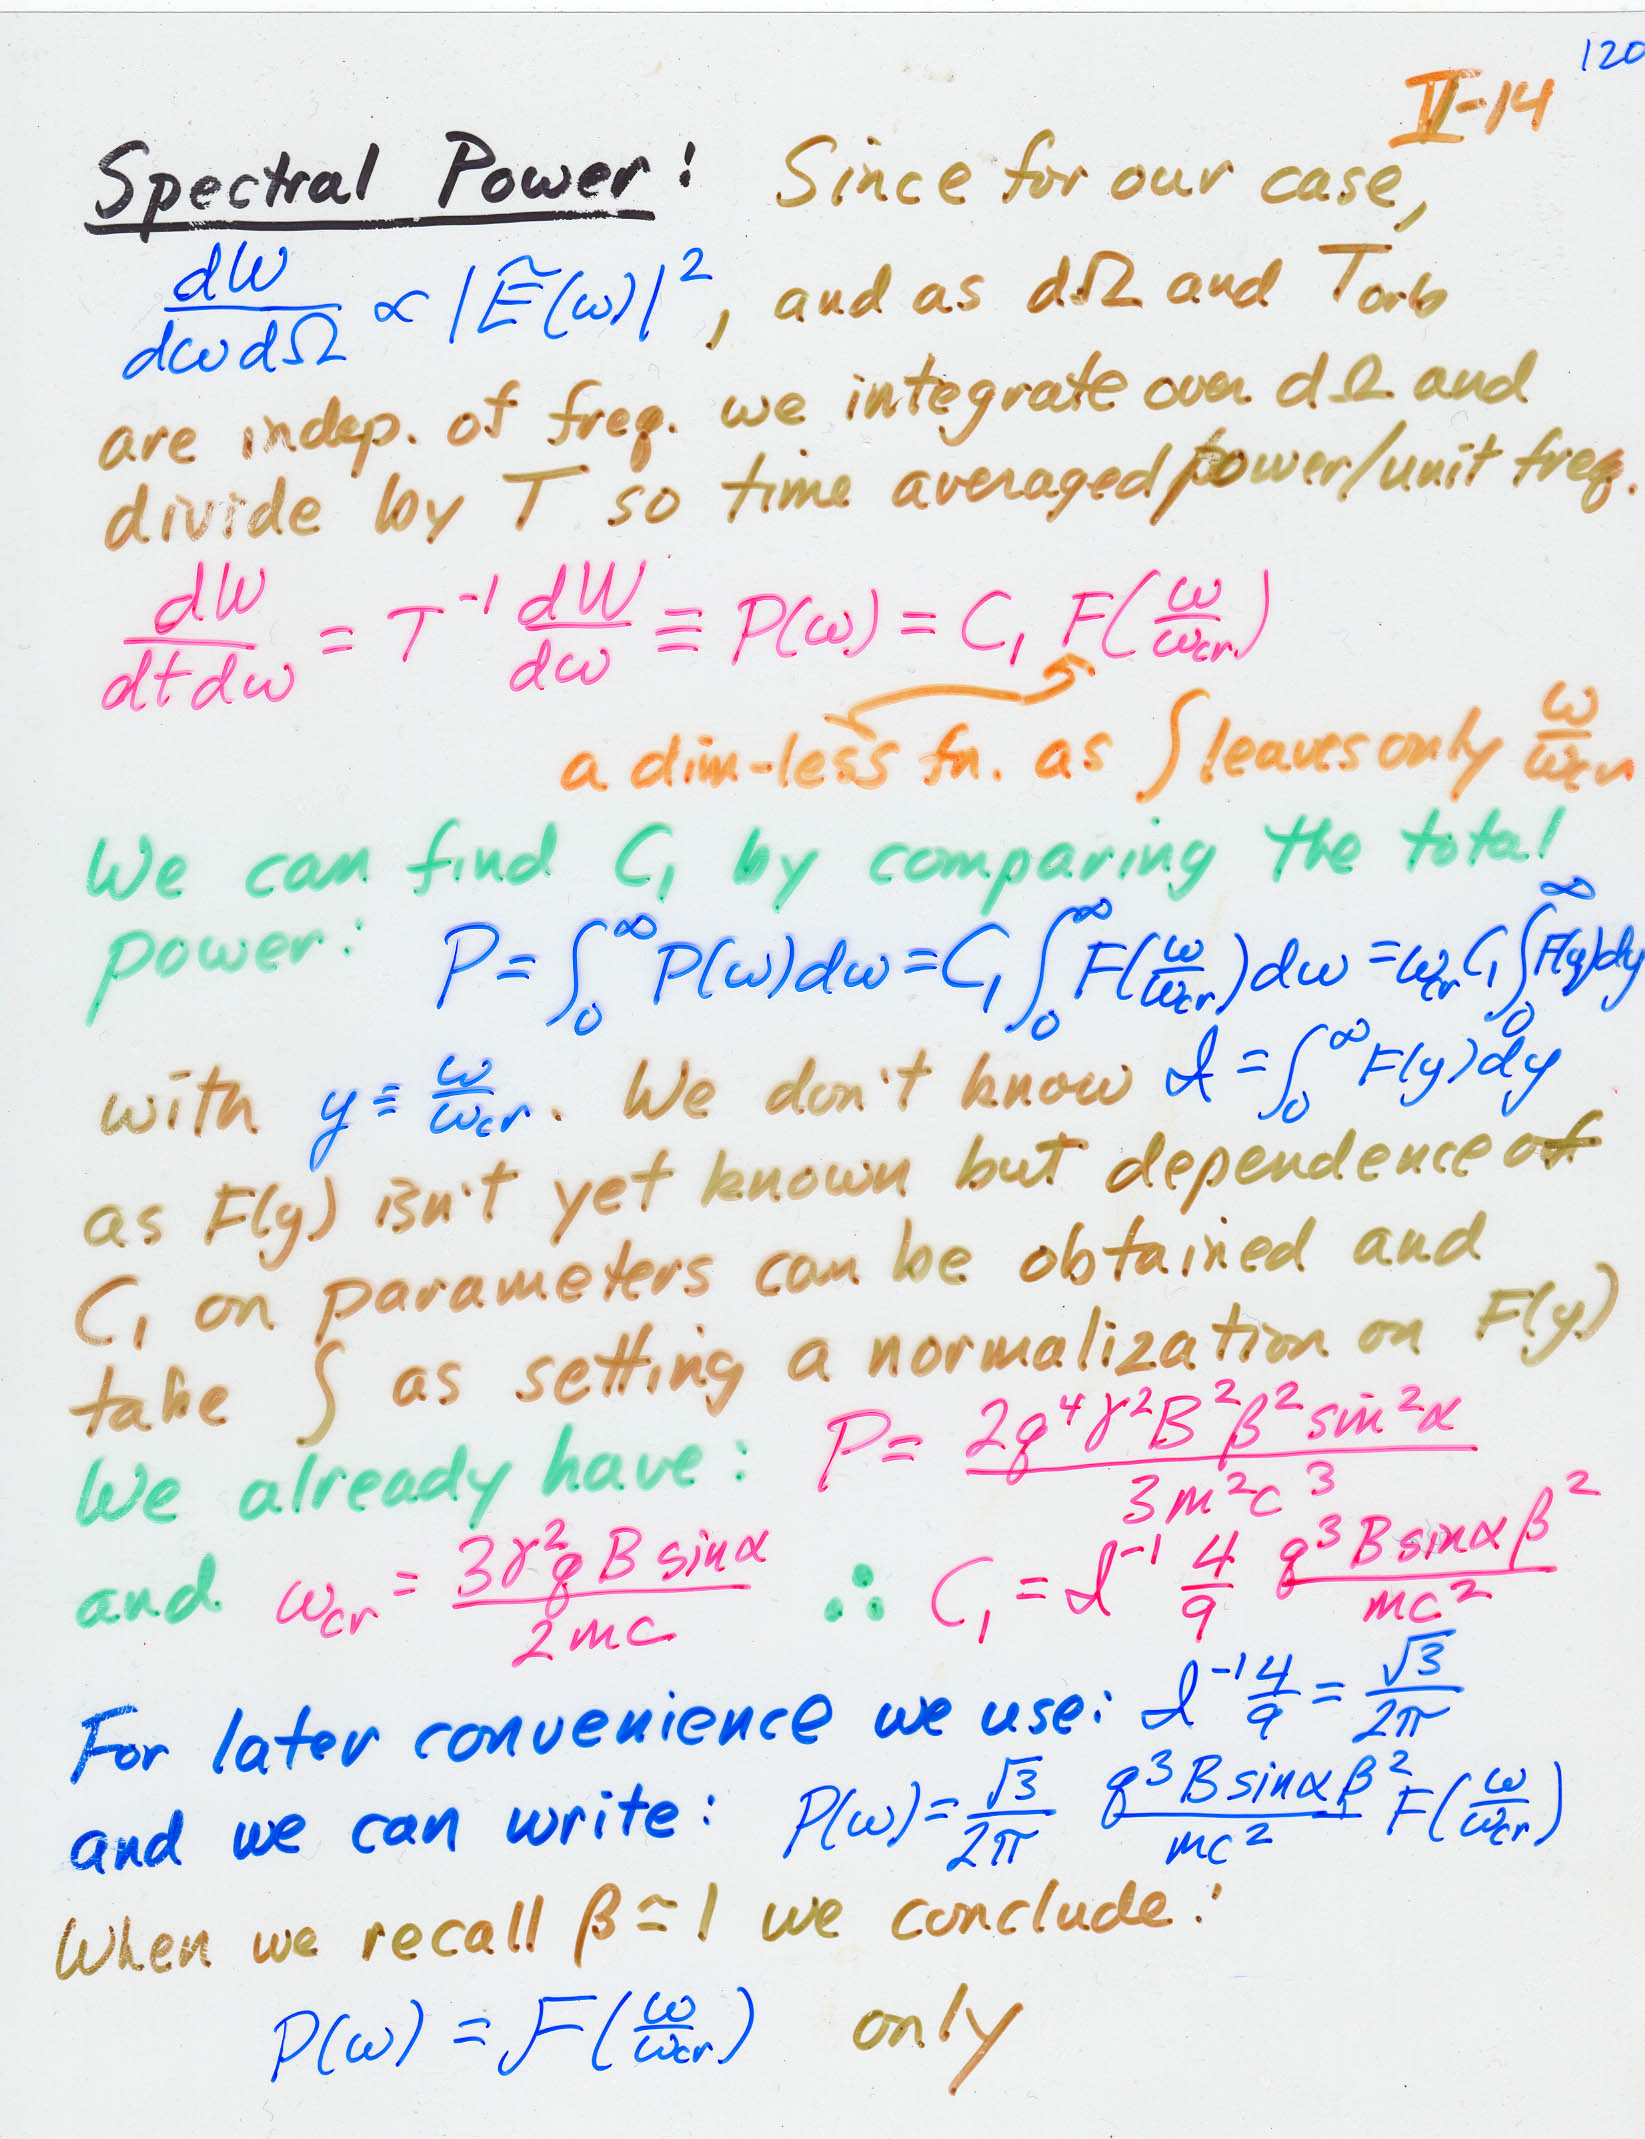 120
V-14
Spectral Power: Since for our case,
dW/dωdΩ ∝ |Ẽ(ω)|², and as dΩ and T_orb
are indep. of freq. we integrate over dΩ and
divide by T so time averaged power/unit freq.
dW/dtdω = T⁻¹ dW/dω ≡ P(ω) = C₁ F(ω/ω_cr)
a dim-less fn. as ∫ leaves only ω/ω_cr
We can find C₁ by comparing the total
power: P = ∫₀^∞ P(ω)dω = C₁ ∫₀^∞ F(ω/ω_cr)dω = ω_cr C₁ ∫₀^∞ F(y)dy
with y ≡ ω/ω_cr. We don't know I = ∫₀^∞ F(y)dy
as F(y) isn't yet known but dependence of
C₁ on parameters can be obtained and
take ∫ as setting a normalization on F(y)
We already have: P = 2q⁴γ²B²β²sin²α / 3m²c³
and ω_cr = 3γ²qB sinα / 2mc ∴ C₁ = I⁻¹ 4/9 q³B sinα β² / mc²
For later convenience we use: I⁻¹ 4/9 = √3/2π
and we can write: P(ω) = √3/2π q³B sinα β²/mc² F(ω/ω_cr)
When we recall β ≃ 1 we conclude:
P(ω) = F(ω/ω_cr) only